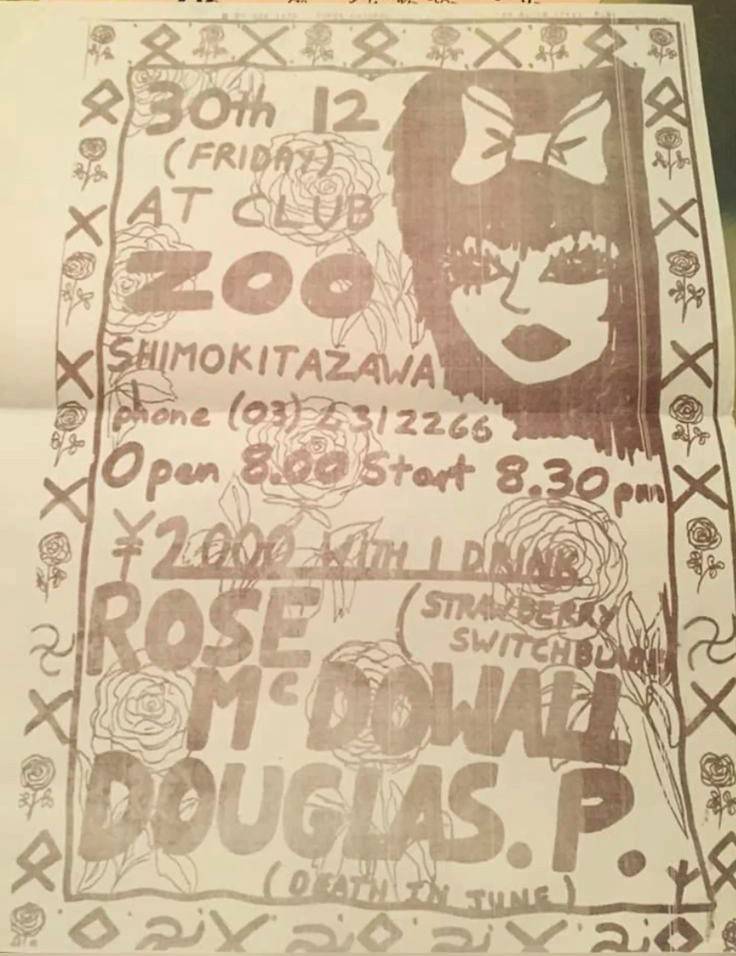 30th 12
(FRIDAY)
AT CLUB
ZOO
SHIMOKITAZAWA
phone (03) 2312266
Open 8.00 Start 8.30pm
¥2000 WITH 1 DRINK
ROSE (STRAWBERRY
SWITCHBLADE)
McDOWALL
DOUGLAS. P.
(DEATH IN JUNE)